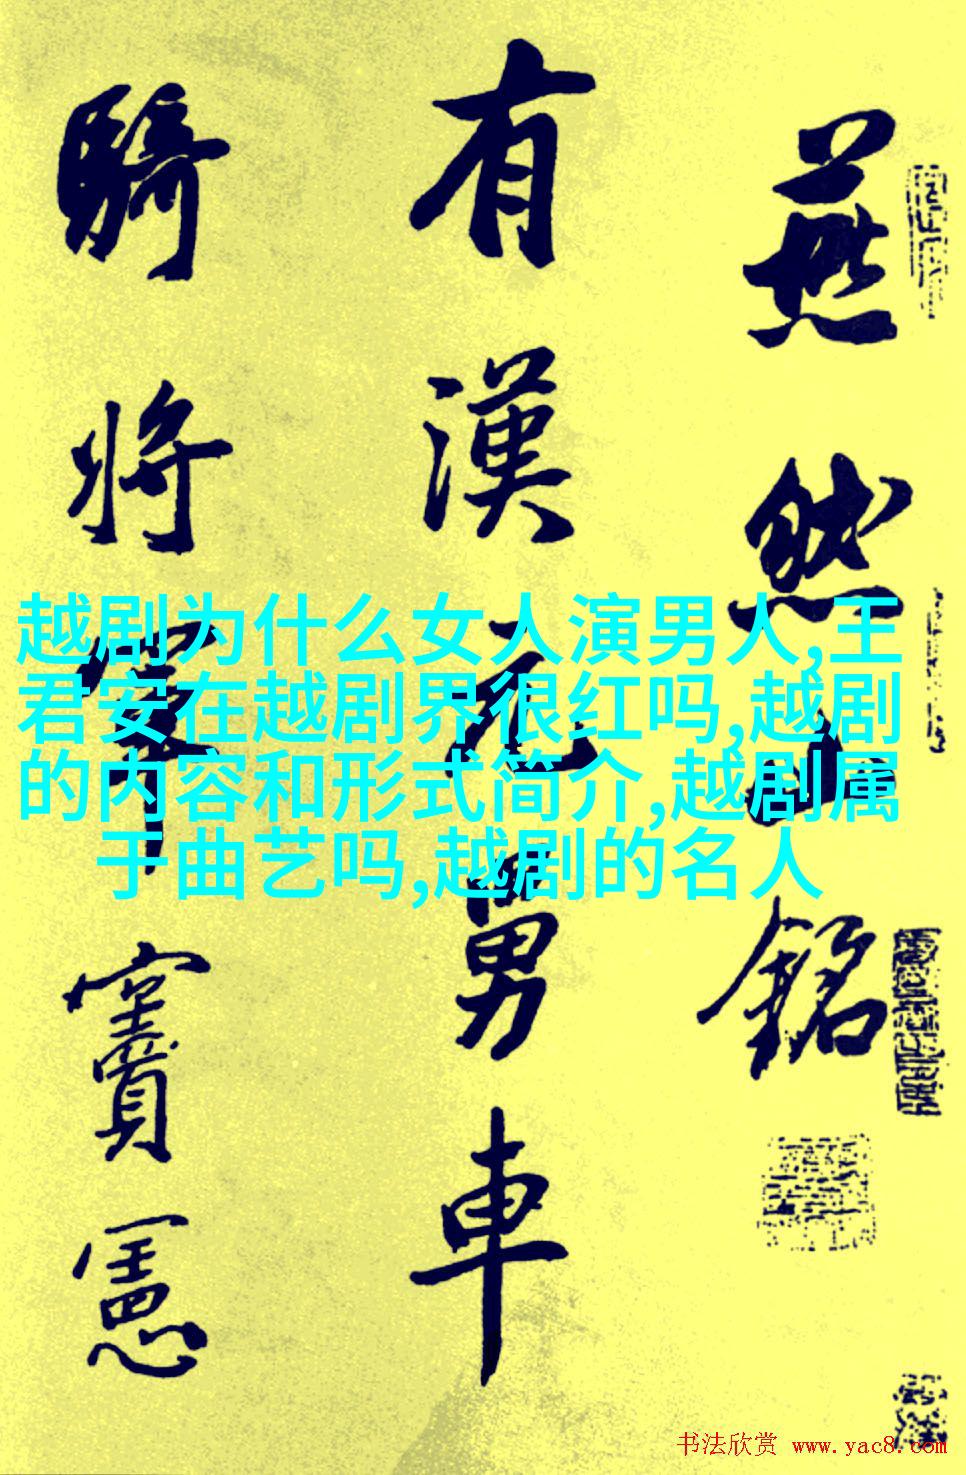 燕然山銘
有漢元舅車
騎將軍竇憲
越剧为什么女人演男人,王
君安在越剧界很红吗,越剧
的内容和形式简介,越剧属
于曲艺吗,越剧的名人
书法欣赏 www.yac8.com